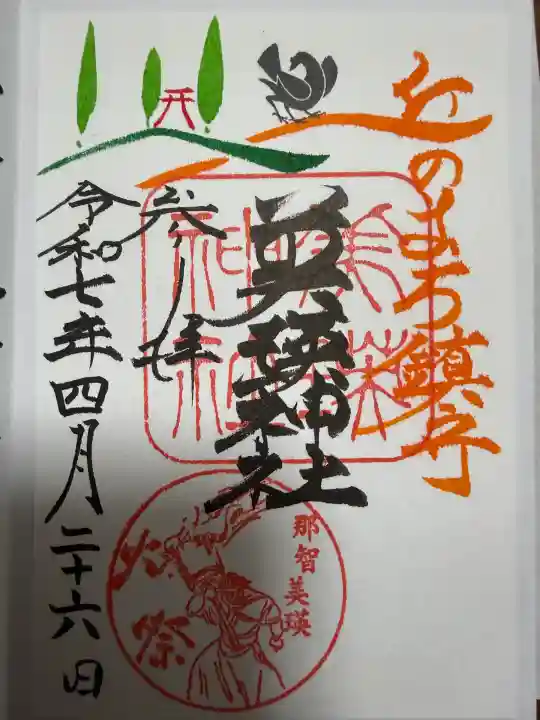 丘のまち鎮守
美瑛神社
参拝
令和七年四月二十六日
美瑛神社
那智美瑛
火祭